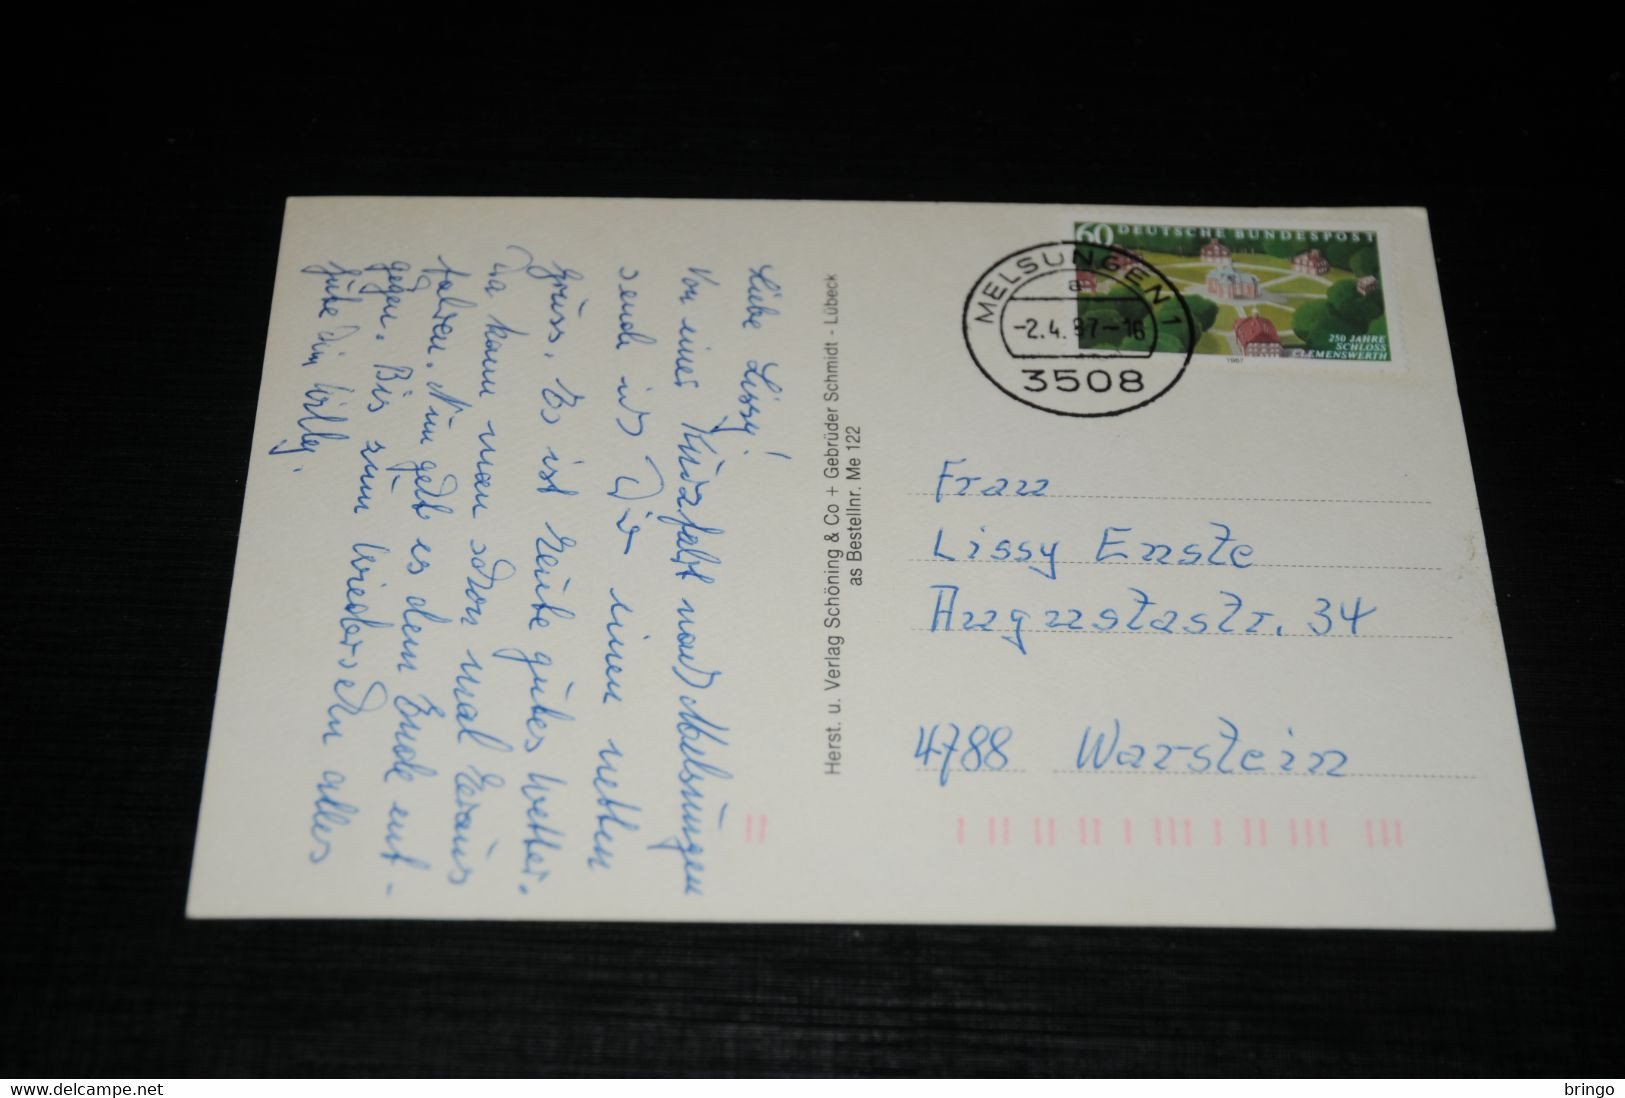 Liebe Lissy!
Von einer Kurzfahrt nach Melsungen
sende ich Dir einen netten
Gruss. Es ist heute gutes Wetter.
Da kann man schon mal heraus
fahren. Nun geht es dem Ende ent-
gegen. Bis zum Wiedersehn alles
Gute Dein Willy.
Herst. u. Verlag Schöning & Co + Gebrüder Schmidt - Lübeck
as Bestellnr. Me 122
60 DEUTSCHE BUNDESPOST
250 JAHRE
SCHLOSS
CLEMENSWERTH
1987
MELSUNGEN 1
a
-2.4.87-16
3508
Frau
Lissy Enste
Augustastr. 34
4788 Warstein
www.delcampe.net
bringo